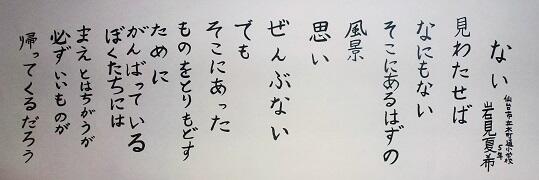 ない
仙台市立木町通小学校
5年
岩見夏希
見わたせば
なにもない
そこにあるはずの
風景
思い
ぜんぶない
でも
そこにあった
ものをとりもどす
ために
がんばっている
ぼくたちには
まえとはちがうが
必ずいいものが
帰ってくるだろう